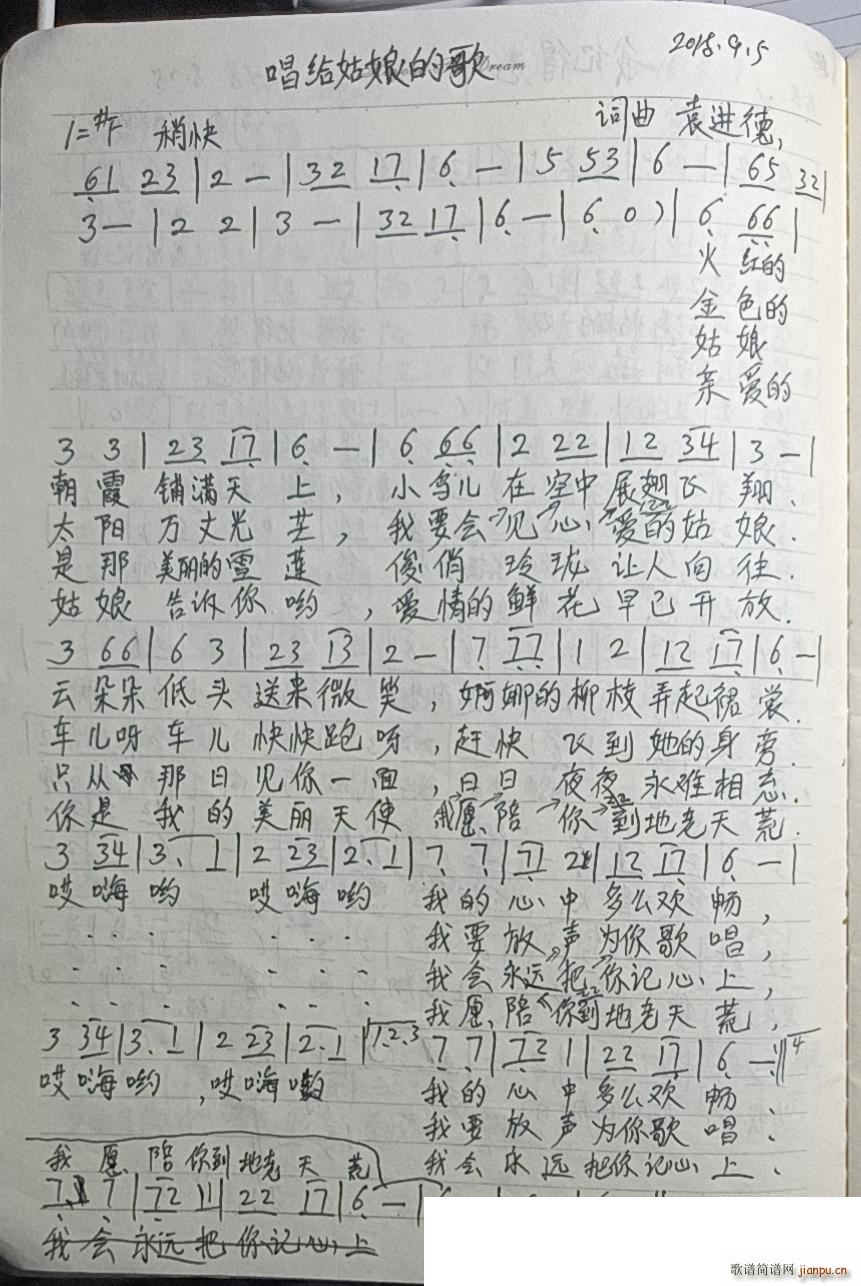 Dream
2018.9.5
唱给姑娘的歌
1=#F 稍快
词曲 袁进德
61 23|2 —|32 17|6 —|5 53|6 —|65 32|
3—|2 2|3 —|32 17|6—|6 0)|6 66|
火 红的
金 色的
姑 娘
亲 爱的
3 3|23 17|6 —|6 66|2 22|12 34|3 —|
朝 霞 铺满天 上, 小鸟儿 在 空中 展翅飞 翔.
太 阳 万丈光 芒, 我要会见心爱的姑 娘.
是 那 美丽的雪 莲 俊俏 玲珑 让人向 往.
姑 娘 告诉你 哟, 爱情的 鲜 花 早已开 放.
3 66|6 3|23 13|2 —|7 77|1 2|12 17|6 —|
云 朵朵 低 头 送来微 笑, 婀娜的柳枝 弄起裙 裳.
车 儿呀 车 儿 快快跑 呀, 赶快 飞到 她的身 旁.
只从 那 日 见你一 面, 日日 夜夜 永难相 忘.
你是 我 的 美丽天 使 我愿陪 你 到地老天 荒.
3 34|3. 1|2 23|2. 1|7 7|71 2|12 17|6 —|
哎 嗨 哟 哎 嗨 哟 我 的 心 中 多么欢 畅,
· · · · · · 我 要 放 声 为你歌 唱,
· · · · · · 我 会 永远 把 你记心 上,
· · · · · · 我 愿 陪 你到地老天 荒,
3 34|3. 1|2 23|2. 1|1.2.3 7 7|72 1|22 17|6 —:‖4
哎 嗨 哟, 哎 嗨 哟 我 的 心 中 多么欢 畅
我 要 放 声 为你歌 唱
我 愿 陪 你到 地老 天 荒 我 会 永 远 把你记心 上
7 7|72 1|22 17|6 —|
我 会 永远 把 你记心 上
歌谱简谱网
jianpu.cn